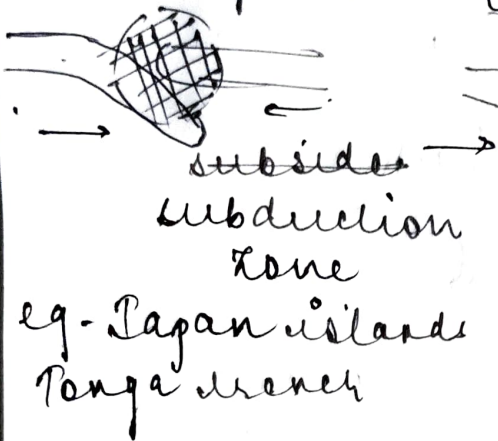 subsides
subduction
zone
eg - Japan islands
Tonga trench